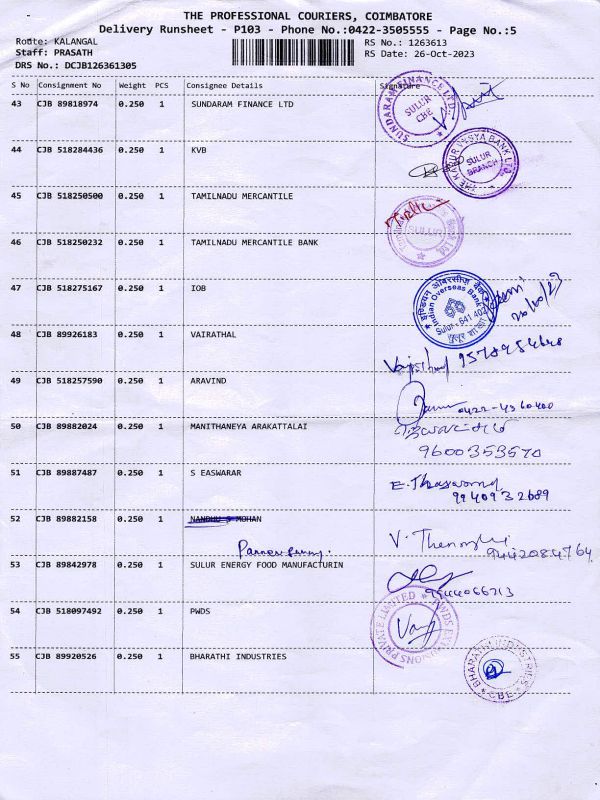 THE PROFESSIONAL COURIERS, COIMBATORE
Delivery Runsheet - P103 - Phone No.:0422-3505555 - Page No.:5
Route: KALANGAL
RS No.: 1263613
Staff: PRASATH
RS Date: 26-Oct-2023
DRS No.: DCJB126361305
S No Consignment No Weight PCS Consignee Details Signature
43 CJB 89818974 0.250 1 SUNDARAM FINANCE LTD
SUNDARAM FINANCE LTD. SULUR CBE
44 CJB 518284436 0.250 1 KVB
THE KARUR VYSYA BANK LTD SULUR BRANCH
45 CJB 518250500 0.250 1 TAMILNADU MERCANTILE
SULUR
46 CJB 518250232 0.250 1 TAMILNADU MERCANTILE BANK
47 CJB 518275167 0.250 1 IOB
इण्डियन ओवरसीज़ बैंक
Indian Overseas Bank
Sulur - 641 402
26/10/23
48 CJB 89926183 0.250 1 VAIRATHAL
9578954648
49 CJB 518257590 0.250 1 ARAVIND
0422-4360400
50 CJB 89882024 0.250 1 MANITHANEYA ARAKATTALAI
9600353570
51 CJB 89887487 0.250 1 S EASWARAR
9940932689
52 CJB 89882158 0.250 1 NANDHU S MOHAN
9442084764
53 CJB 89842978 0.250 1 SULUR ENERGY FOOD MANUFACTURIN
9944066213
54 CJB 518097492 0.250 1 PWDS
PRIVATE LIMITED
55 CJB 89920526 0.250 1 BHARATHI INDUSTRIES
BHARATHI INDUSTRIES CBE